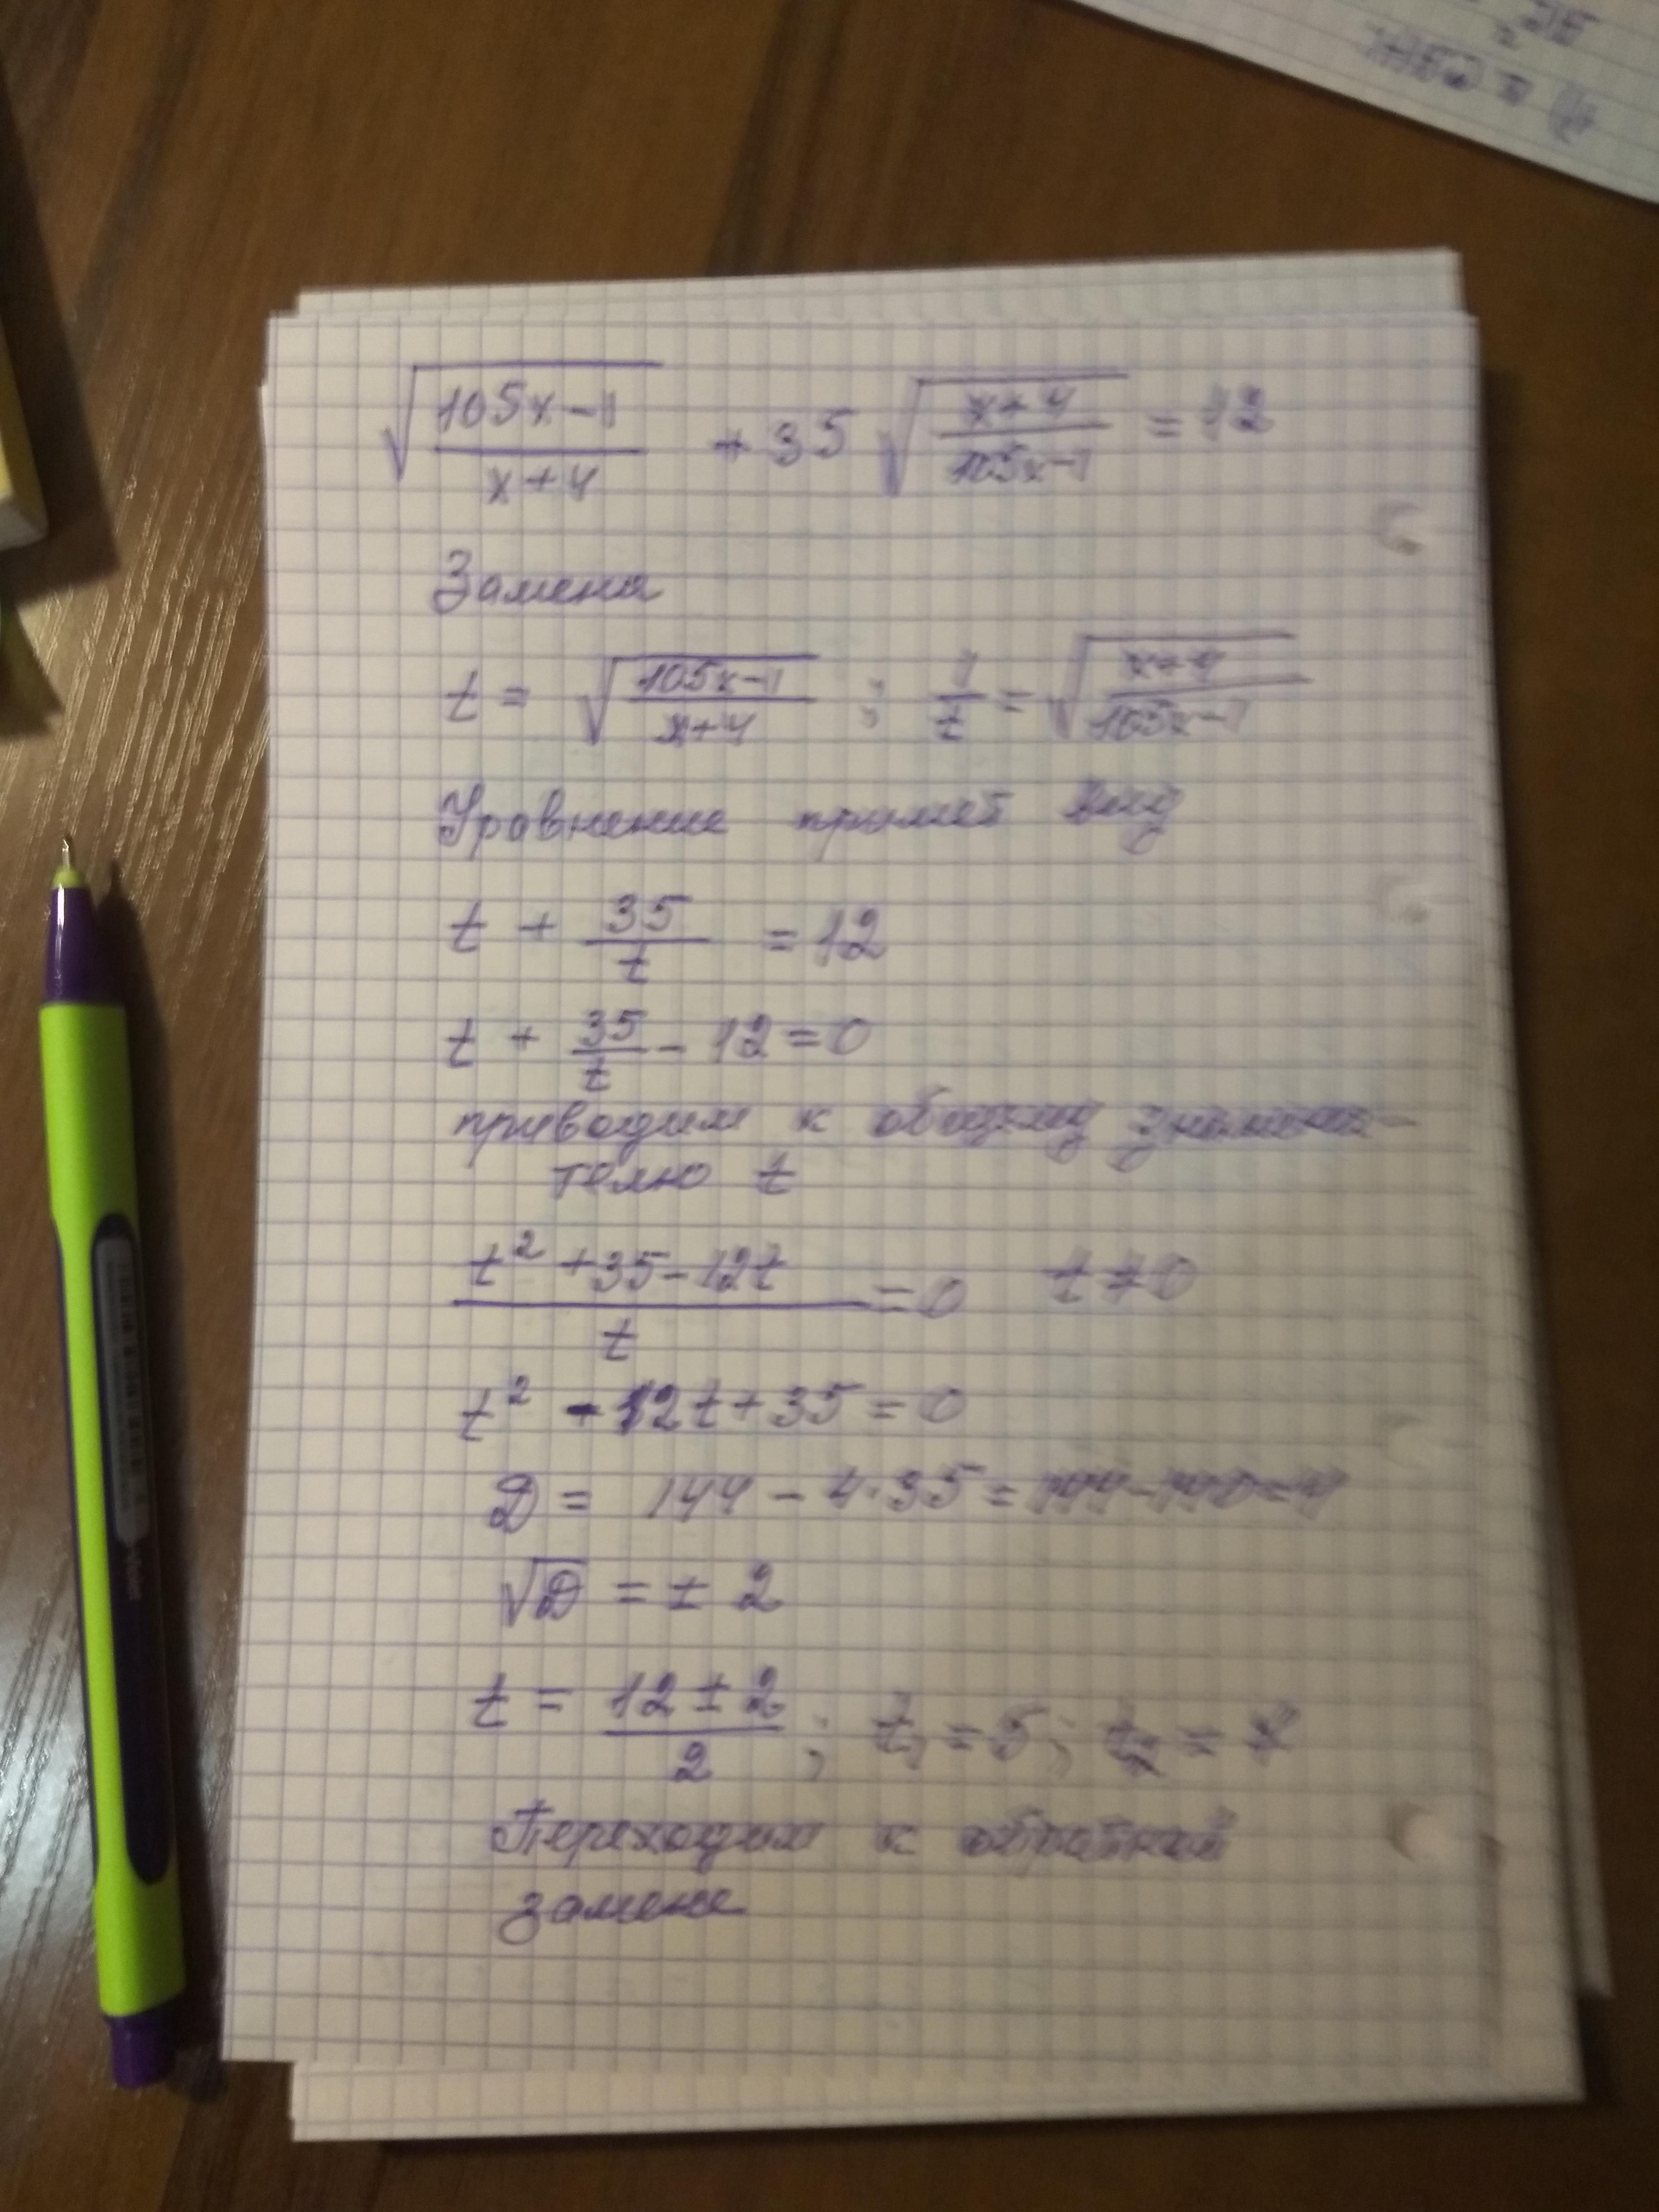 √(105x-1)/(x+4) + 35 √(x+4)/(105x-1) = 12
Замена
t = √(105x-1)/(x+4) ; 1/t = √(x+4)/(105x-1)
Уравнение примет вид
t + 35/t = 12
t + 35/t - 12 = 0
приводим к общему знамена-
телю t
(t² + 35 - 12t)/t = 0 t ≠ 0
t² - 12t + 35 = 0
D = 144 - 4·35 = 144 - 140 = 4
√D = ± 2
t = (12 ± 2)/2 ; t₁ = 5 ; t₂ = 7
Переходим к обратной
замене